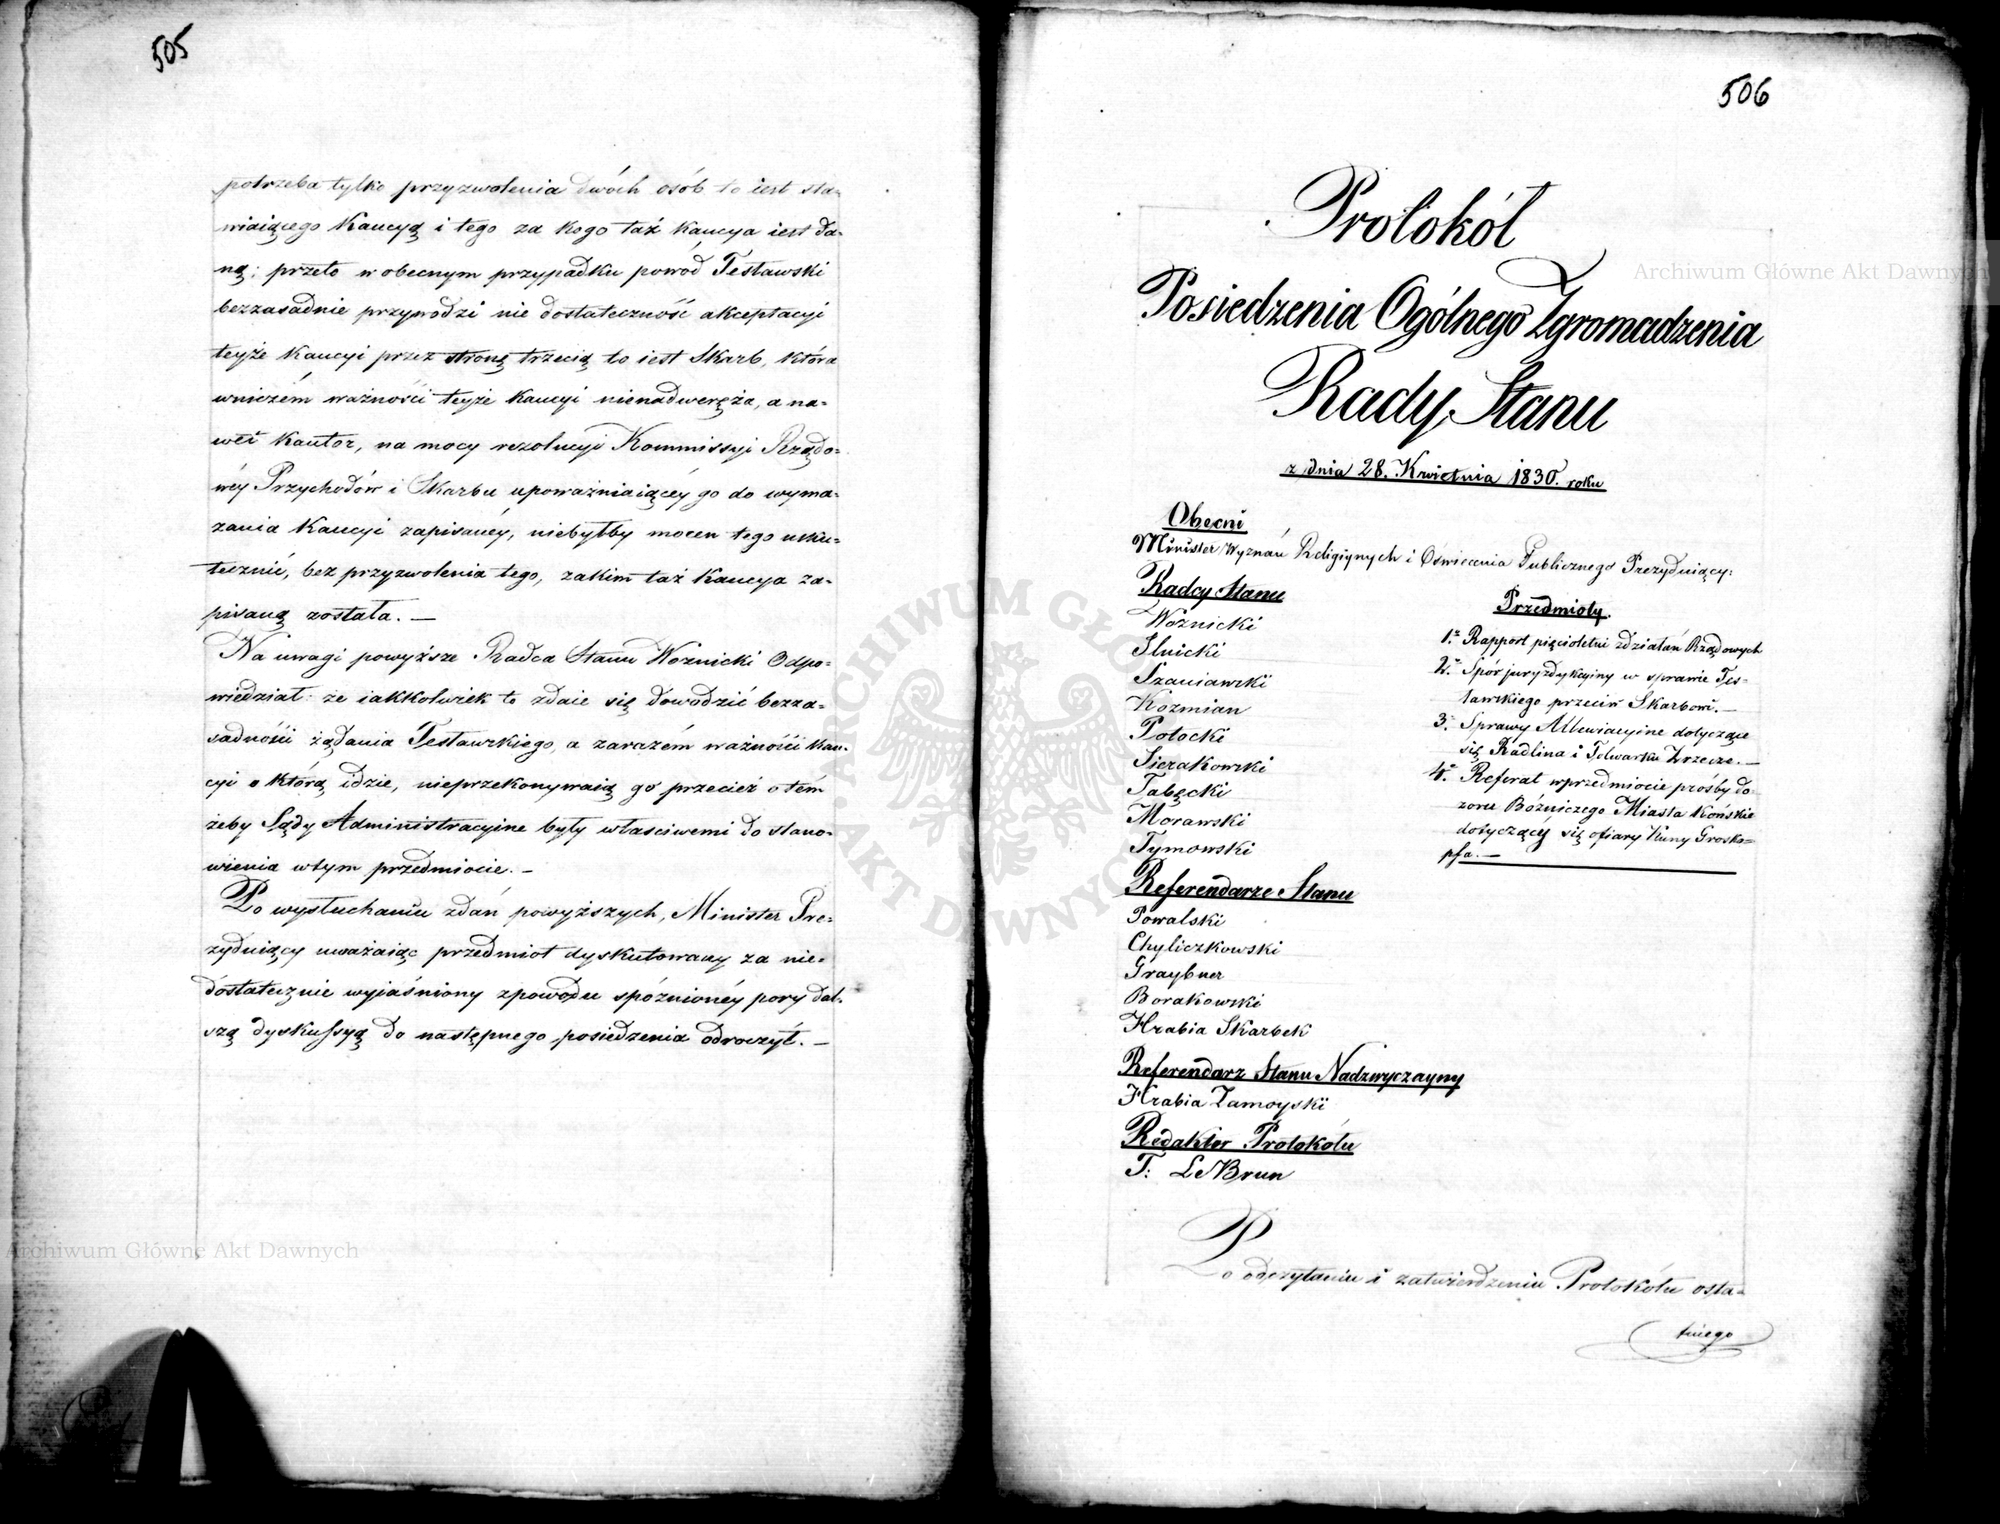 505
potrzeba tylko przyzwolenia dwóch osób to iest sta-
wiaiącego Kaucyą i tego za kogo taż Kaucya iest da-
ną; przeto w obecnym przypadku powód Testawski
bezzasadnie przywodzi nie dostateczność akceptacyi
teyże Kaucyi przez stronę trzecią to iest Skarb, która
wniczém ważności teyże Kaucyi nienadweręża, a na-
wet Kantor, na mocy rezolucyi Kommissyi Rządo-
wéy Przychodów i Skarbu upoważniaiącéy go do wyma-
zania Kaucyi zapisanéy, niebyłby mocen tego usku-
tecznić, bez przyzwolenia tego, zakim taż Kaucya za-
pisaną została. —
Na uwagi powyższe Radca Stanu Woznicki Odpo-
wiedział: że iakkolwiek to zdaie się dowodzić bezza-
sadności żądania Testawskiego, a zarazém ważności Kau-
cyi o którą idzie, nieprzekonywaią go przecież o tém
żeby Sądy Administracyine były właściwemi do stano-
wienia wtym przedmiocie. —
Po wysłuchaniu zdań powyższych, Minister Pre-
zyduiący uważaiąc przedmiot dyskutowany za nie-
dostatecznie wyiaśniony zpowodu spóźnionéy pory dal-
szą dyskussyą do następnego posiedzenia odroczył. —
506
Protokół
Posiedzenia Ogólnego Zgromadzenia
Rady Stanu
z dnia 28. Kwietnia 1830. roku
Obecni
Minister Wyznań Religiynych i Oświecenia Publicznego Prezyduiący:
Radcy Stanu
Woznicki
Ilnicki
Szaniawski
Kozmian
Potocki
Sierakowski
Tabęcki
Morawski
Tymowski
Referendarze Stanu
Powalski
Chyliczkowski
Graybner
Borakowski
Hrabia Skarbek
Referendarz Stanu Nadzwyczayny
Hrabia Zamoyski
Redaktor Protokółu
T: Le Brun
Przedmioty.
1. Rapport pięcioletni zdziałań Rządowych
2. Spór juryzdykcyiny w sprawie Tes-
tawskiego przeciw Skarbowi. —
3. Sprawy Allewiacyine dotyczące
się Radlina i Folwarku Zrzecze. —
4. Referat wprzedmiocie prośby do-
zoru Bóżniczego Miasta Końskie
dotyczącéy się ofiary Kuny Grosko-
pfa. —
Po odczytaniu i zatwierdzeniu Protokółu osta-
tniego
Archiwum Główne Akt Dawnych
Archiwum Główne Akt Dawnych
ARCHIWUM GŁÓWNE AKT DAWNYCH